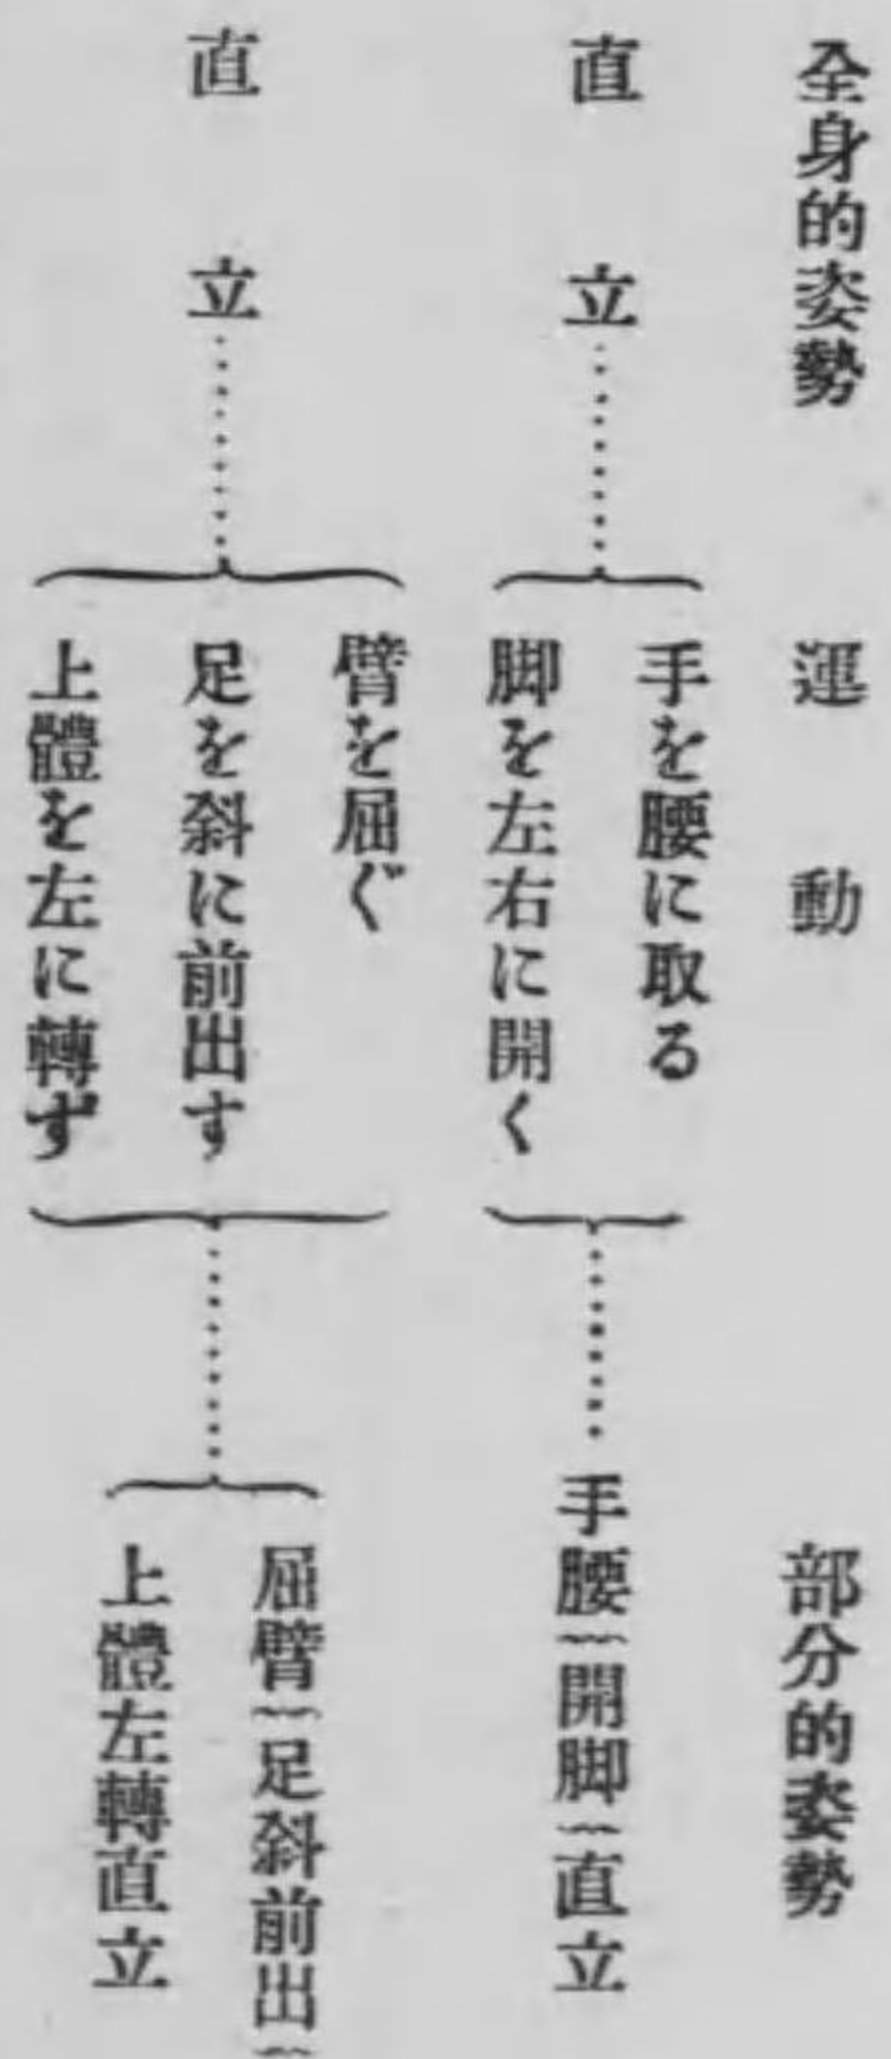 全身的姿勢 運動 部分的姿勢
直立……
手を腰に取る
脚を左右に開く
……手腰〜開脚〜直立
直立……
臂を屈ぐ
足を斜に前出す
上體を左に轉ず
……
屈臂〜足斜前出〜
上體左轉直立